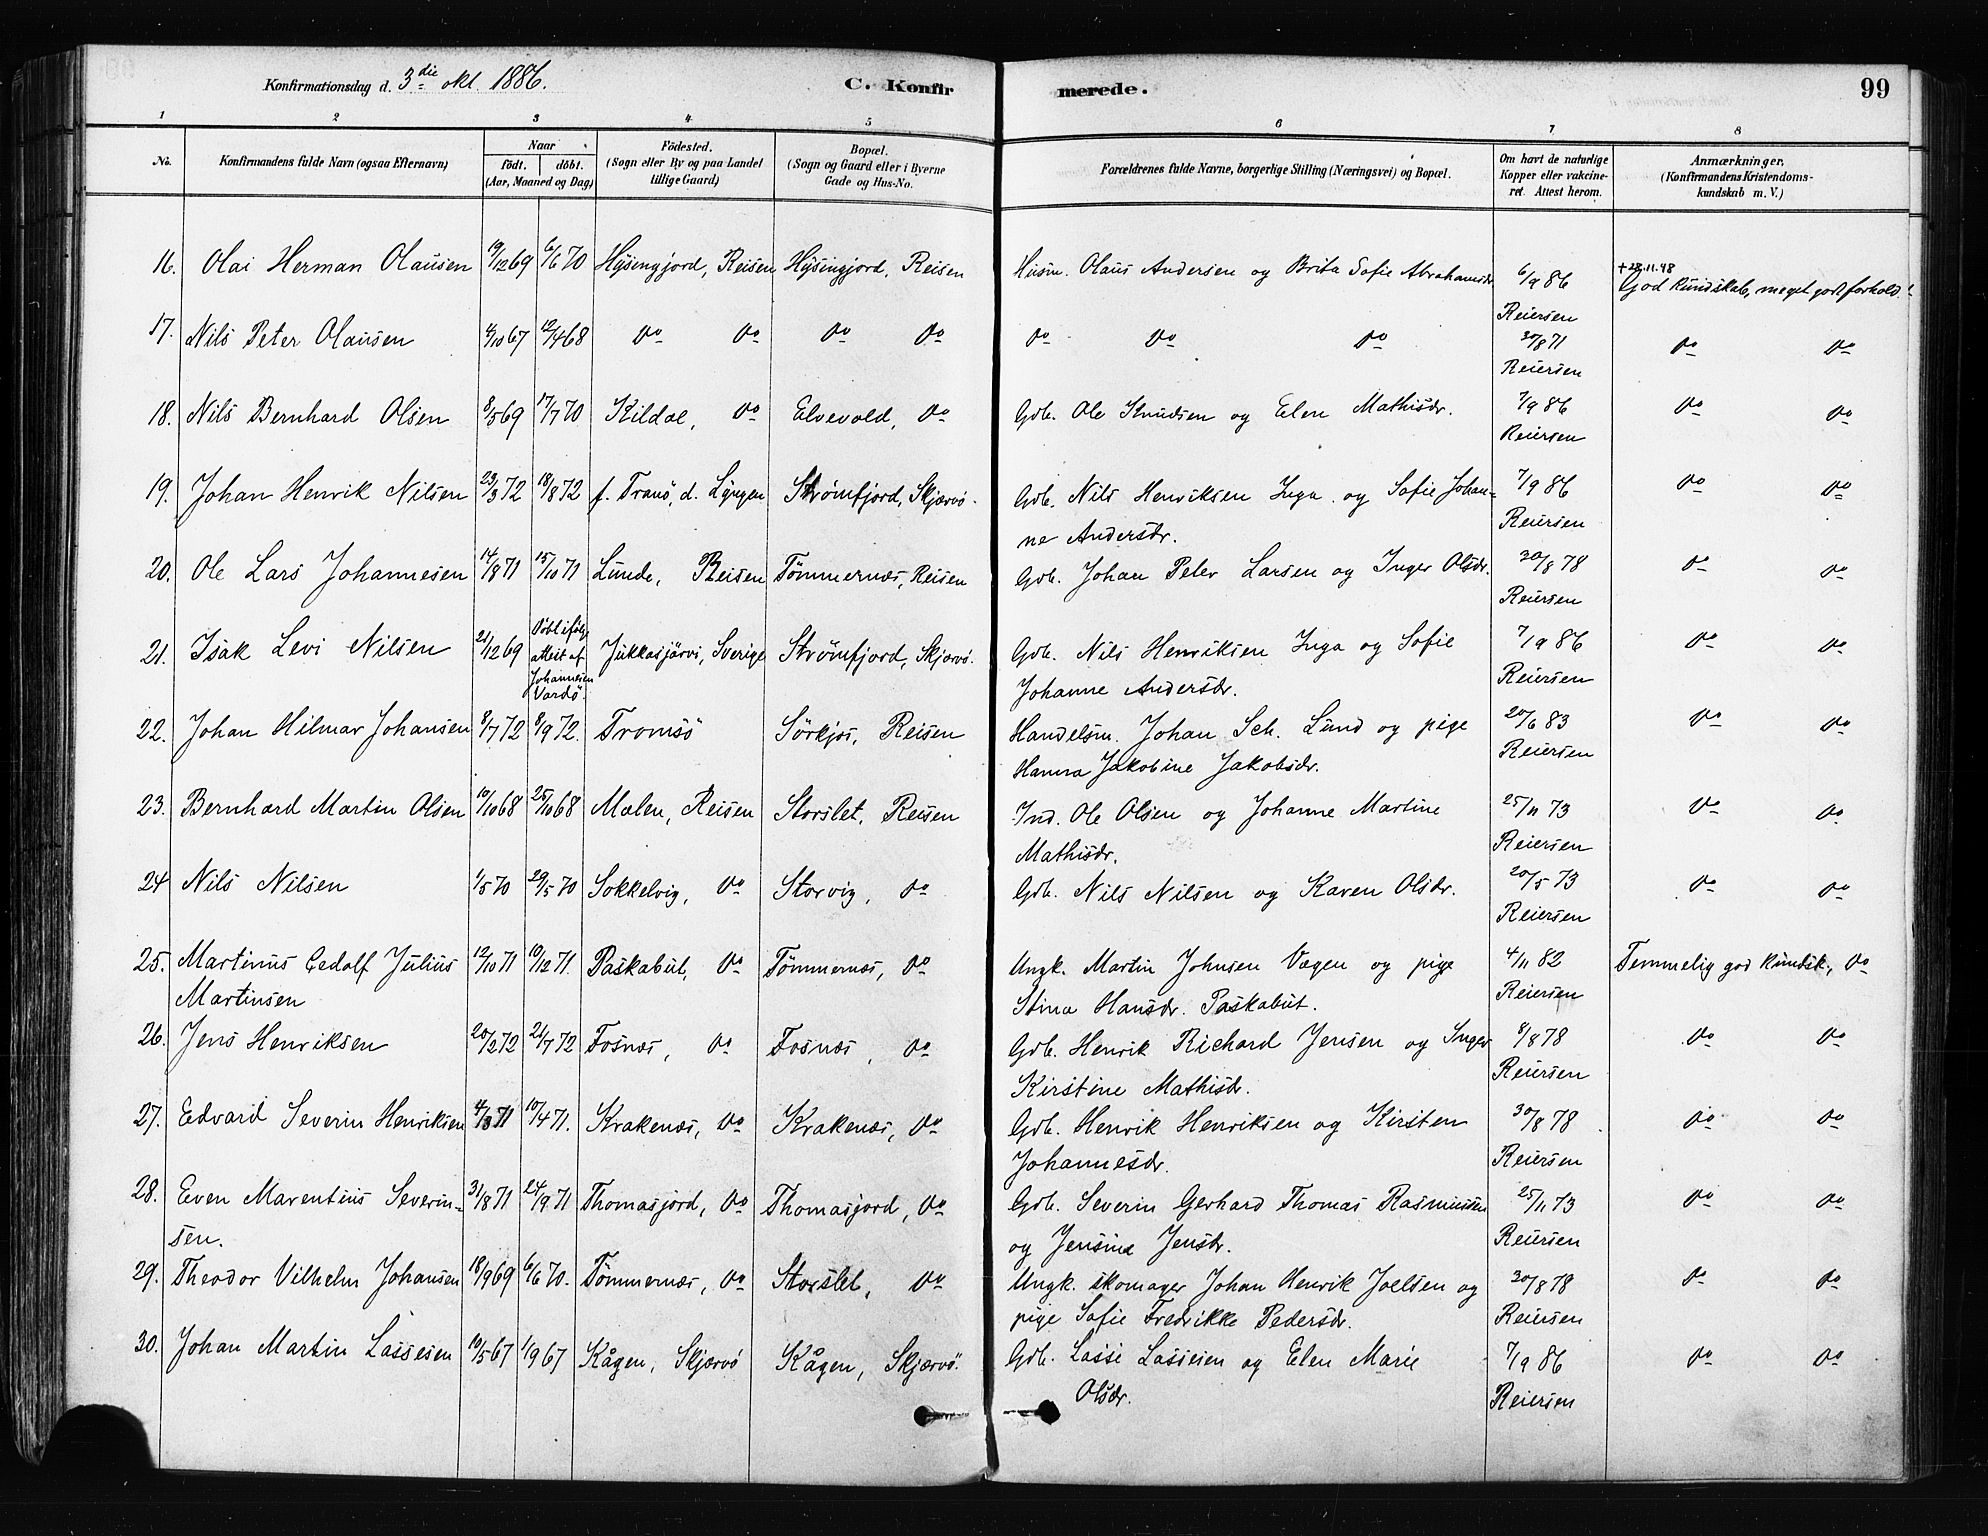 Konfirmationsdag d. 3die okt. 1886. C. Konfirmerede. 99
1 2 3 4 5 6 7 8
No. Konfirmandens fulde Navn (ogsaa Efternavn) Naar födt. döbt. (Aar, Maaned og Dag) Födested. (Sogn eller By og paa Landet tillige Gaard) Bopæl. (Sogn og Gaard eller i Byerne Gade og Hus-No. Forældrenes fulde Navne, borgerlige Stilling (Næringsvei) og Bopæl. Om havt de naturlige Kopper eller vakcineret. Attest herom. Anmærkninger, (Konfirmandens Kristendomskundskab m. V.)
+28.11.48
16. Olai Herman Olausen 19/12 69 6/6 70 Hysingjord, Reisen Hysingjord, Reisen Husm. Olaus Andersen og Brita Sofie Abrahamsdr. 6/9 86 God kundskab, meget godt forhold.
Reiersen
17. Nils Peter Olausen 4/10 67 12/4 68 do do do do do do do 30/8 71 do do
Reiersen
18. Nils Bernhard Olsen 8/5 69 17/7 70 Kildal, do Elvevold, do Gdb. Ole Knudsen og Elen Mathisdr. 7/9 86 do do
Reiersen
19. Johan Henrik Nilsen 23/3 72 18/8 72 f. Tranö, d. Lyngen Strömfjord, Skjærvö. Gdb. Nils Henriksen Inga og Sofie Johan= 7/9 86 do do
ne Andersdr. Reiersen
20. Ole Lars Johannesen 14/8 71 15/10 71 Lunde, Reisen Tömmernæs, Reisen Gdb. Johan Peter Larsen og Inger Olsdr. 30/8 78 do do
Reiersen
21. Isak Levi Nilsen 21/12 69 Döbt ifölg. attest af Johannesen Vardö. Jukkasjärvi, Sverige Strömfjord, Skjærvö. Gdb. Nils Henriksen Inga og Sofie 7/9 86 do do
Johanne Andersdr. Reiersen
22. Johan Hilmar Johansen 8/7 72 8/9 72. Tromsö Sörkjos, Reisen Handelsm. Johan Sch. Lund og pige 20/6 83 do do
Hanna Jakobine Jakobsdr. Reiersen
23. Bernhard Martin Olsen 10/10 68 25/10 68 Mælen, Reisen Storslet, Reisen Ind. Ole Olsen og Johanne Martine 25/11 73 do do
Mathisdr. Reiersen
24 Nils Nilsen 1/5 70 29/5 70 Sokkelvig, do Storvig, do Gdb. Nils Nilsen og Karen Olsdr. 20/5 73 do do
Reiersen
25. Martinus Gedolf Julius 12/10 71 10/12 71. Paskabut, do Tömmernæs, do Ungk. Martin Johnsen Vægen og pige 4/11 82 Temmelig god kundsk., do
Martinsen Stina Hansdr. Paskabut. Reiersen
26. Jens Henriksen 20/2 72 21/7 72 Fosnæs, do Fosnæs, do Gdb. Henrik Richard Jensen og Inger 8/8 78 do do
Kirstine Mathisdr. Reiersen
27. Edvard Severin Henriksen 4/3 71 10/4 71. Krakenæs, do Krakenæs, do Gdb. Henrik Henriksen og Kirsten 30/8 78 do do
Johannesdr. Reiersen
28. Even Marentius Severin= 31/8 71 24/9 71 Thomasjord, do Thomasjord, do Gdb. Severin Gerhard Thomas Rasmussen 25/11 73 do do
sen. og Jensine Jensdr. Reiersen
29. Theodor Vilhelm Johansen 18/9 69 6/6 70. Tömmernæs, do Storslet, do Ungk. skomager Johan Henrik Joelsen og 30/8 78 do do
pige Sofie Fredrikke Pedersdr. Reiersen
30. Johan Martin Lassesen 10/5 67 1/9 67 Kågen, Skjærvö Kågen, Skjærvö. Gdb. Lasse Lassesen og Elen Marie 7/9 86 do do
Olsdr. Reiersen